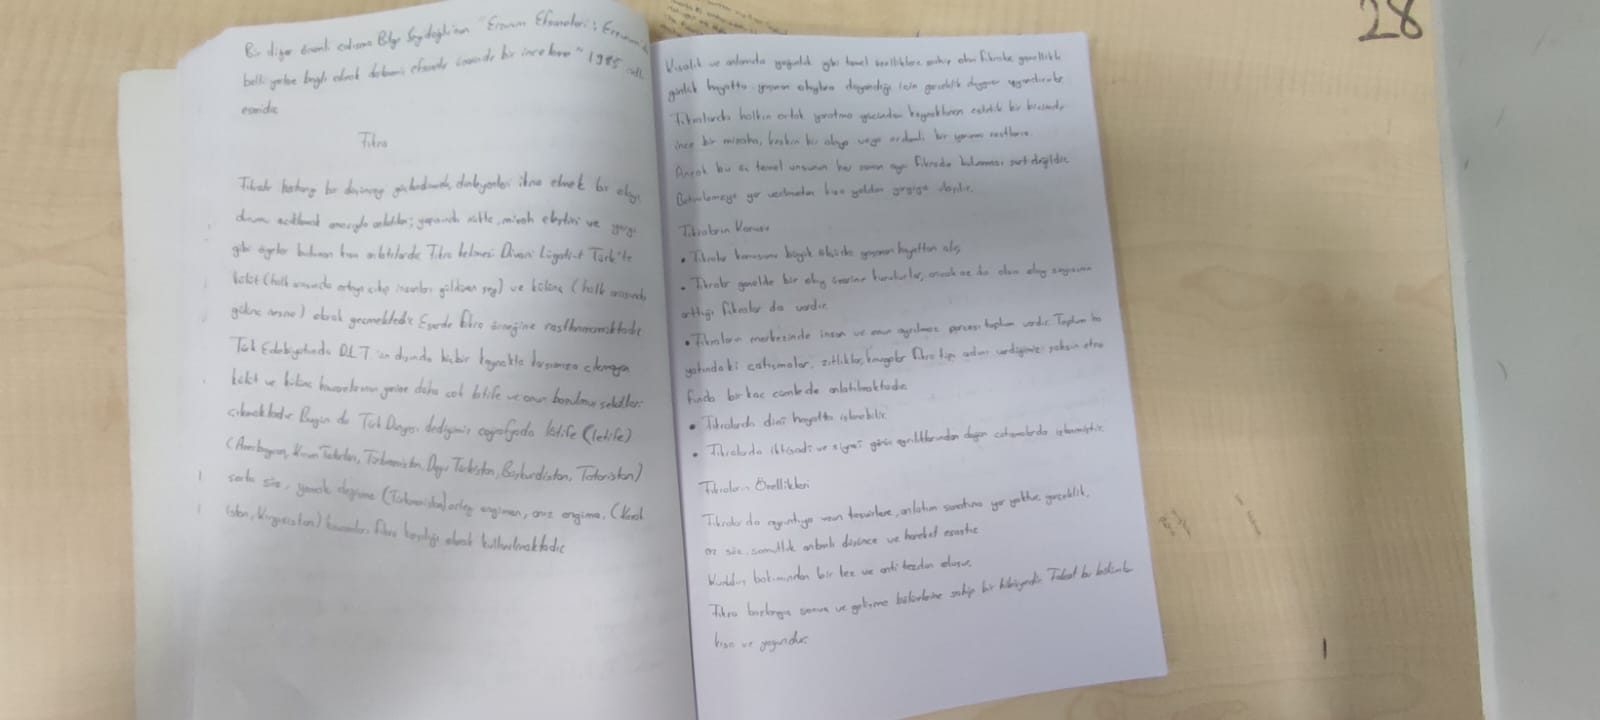 Bir diğer önemli çalışma Bilge Seyidoğlu'nun "Erzurum Efsaneleri; Erzurum'da
belli yerlere bağlı olarak derlenmiş efsaneler üzerinde bir inceleme" 1985 adlı
eseridir.
Fıkra
Fıkralar herhangi bir düşünceyi güçlendirmek, dinleyenleri ikna etmek bir olayı
durumu açıklamak amacıyla anlatılır; yapısında nükte, mizah eleştiri ve yergi
gibi ögeler bulunan kısa anlatılardır. Fıkra kelimesi Divanü Lügatit Türk'te
külüt (halk arasında ortaya çıkıp insanları güldüren şey) ve külünç (halk arasında
gülünç nesne) olarak geçmektedir. Eserde fıkra örneğine rastlanmamaktadır.
Türk Edebiyatında DLT'ün dışında hiçbir kaynakta karşımıza çıkmayan
külüt ve külünç kavramlarının yerine daha çok latife ve onun bozulmuş şekilleri
çıkmaktadır. Bugün de Türk Dünyası dediğimiz coğrafyada latife (letife)
(Azerbaycan, Kırım Tatarları, Türkmenistan, Doğu Türkistan, Başkurdistan, Tataristan)
şorta söz, yomak, değişme (Türkmenistan) ertegi engimen, anız engime, (Kazak
istan, Kırgızistan) kavramları fıkra karşılığı olarak kullanılmaktadır.
Kısalık ve anlamda yoğunluk gibi temel özelliklere sahip olan fıkralar genellikle
günlük hayatta yaşanan olaylara dayandığı için gerçeklik duygusu uyandırırlar.
Fıkralarda halkın ortak yaratma gücünden kaynaklanan estetik bir biçimde
ince bir mizaha, keskin bir alaya veya erdemli bir yoruma rastlanır.
Ancak bu üç temel unsurun her zaman aynı fıkrada bulunması şart değildir.
Betimlemeye yer verilmeden kısa yoldan yargıya ulaşılır.
Fıkraların Konusu
• Fıkralar konusunu büyük ölçüde yaşanan hayattan alır.
• Fıkralar genelde bir olay üzerine kurulurlar, ancak az da olsa olay sayısının
arttığı fıkralar da vardır.
• Fıkraların merkezinde insan ve onun ayrılmaz parçası toplum vardır. Toplum ha
yatındaki çatışmalar, zıtlıklar, kavgalar fıkra tipi adını verdiğimiz şahsın etra
fında bir kaç cümlede anlatılmaktadır.
• Fıkralarda dinî hayatta işlenebilir.
• Fıkralarda iktisadî ve siyasî görüş ayrılıklarından doğan çatışmalarda işlenmiştir.
Fıkraların Özellikleri
Fıkralarda ayrıntıya uzun tasvirlere, anlatım sanatına yer yoktur, gerçeklik,
az söz, somutluk anlamlı düşünce ve hareket esastır.
Kuruluş bakımından bir tez ve anti tezden oluşur.
Fıkra başlangıç sonuç ve gelişme bölümlerine sahip bir hikayedir. Fakat bu bölümler
kısa ve yoğundur.
28